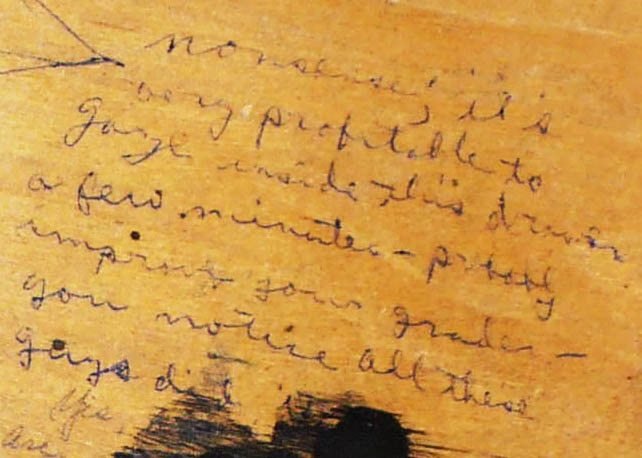 nonsense, it's
very profitable to
gaze inside this drawer
a few minutes - probably
improves your grades -
you notice all these
guys did it
are